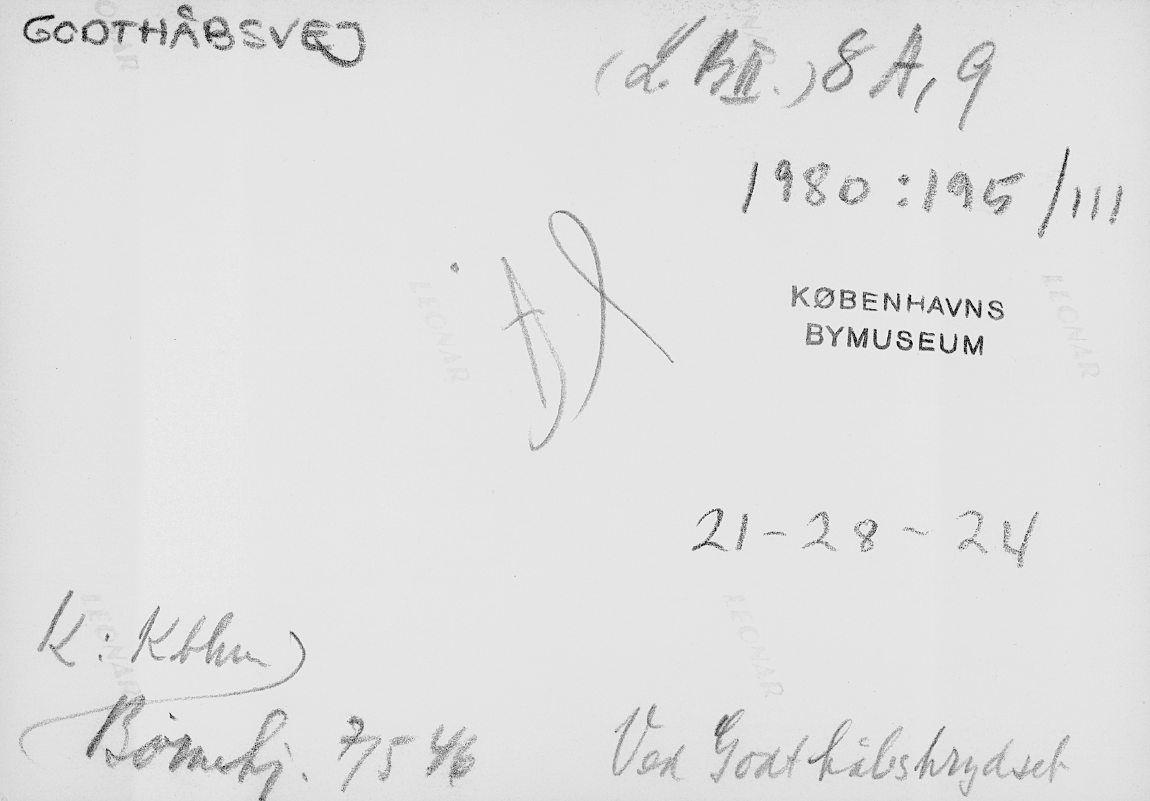 GODTHÅBSVEJ
(L. B II.) 8 A, 9
1980:195/III
KØBENHAVNS
BYMUSEUM
LEONAR
LEONAR
21-28-24
LEONAR
LEONAR
K: Kbhvn
Børnehj. 7/5 46
Ved Godthåbskrydset